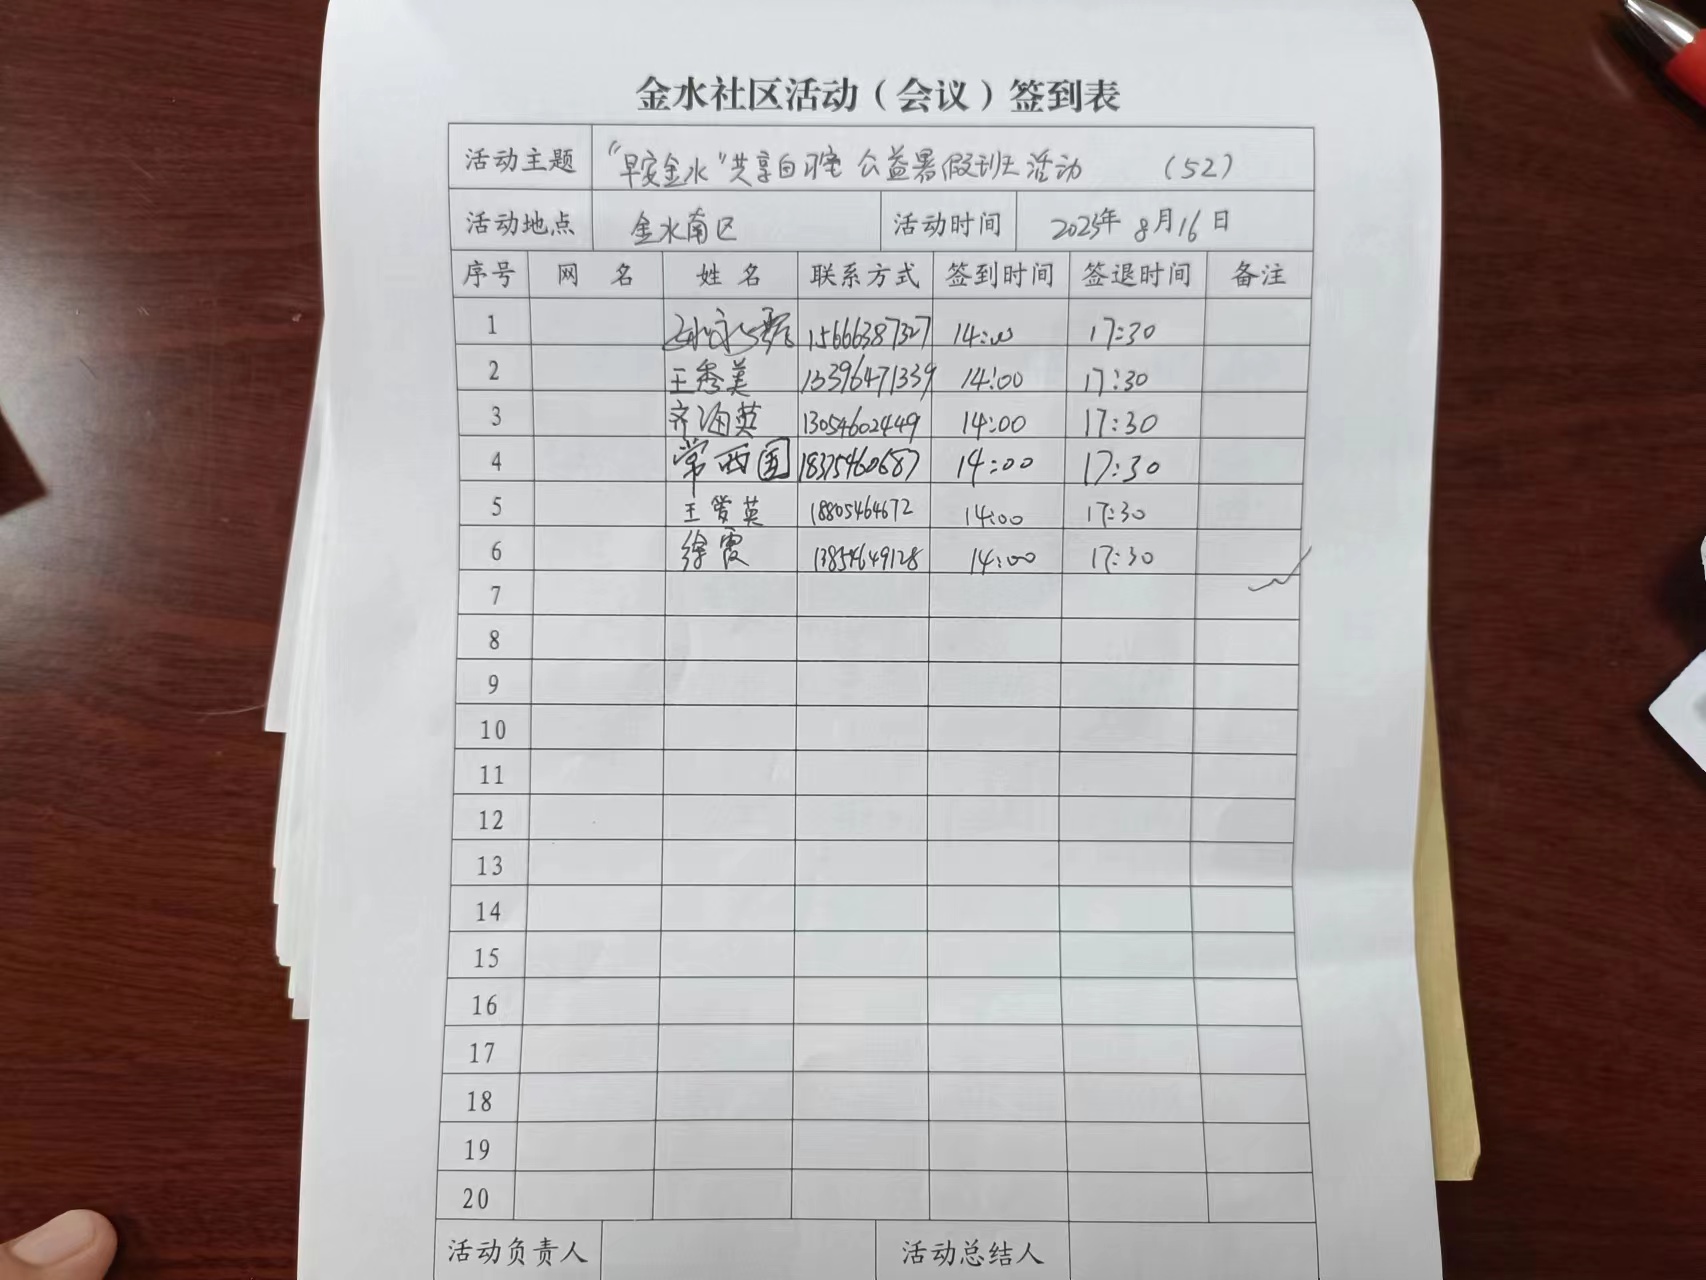 金水社区活动（会议）签到表
活动主题 “早安金水”共享自习室 公益暑假班活动 （52）
活动地点 金水南区 活动时间 2025年 8月16日
序号 网 名 姓 名 联系方式 签到时间 签退时间 备注
1 15666387327 14:00 17:30
2 王秀美 13396471339 14:00 17:30
3 齐海英 13054602449 14:00 17:30
4 常西国 18375460687 14:00 17:30
5 王爱英 18805464672 14:00 17:30
6 徐霞 13854649128 14:00 17:30
7
8
9
10
11
12
13
14
15
16
17
18
19
20
活动负责人 活动总结人